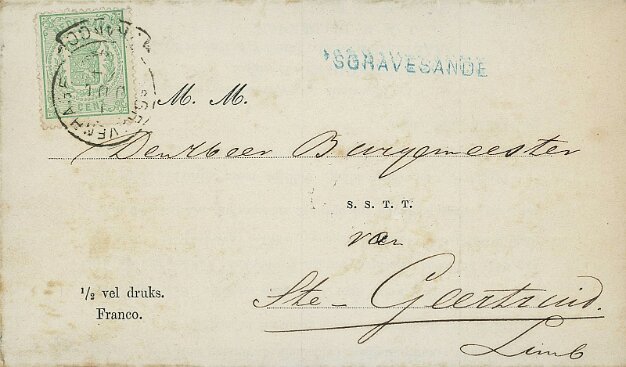 'SGRAVESANDE
M. M.
Den Heer Burgemeester
S. S. T. T.
van
Ste - Geertruid.
Limb
1/2 vel druks.
Franco.
CENT